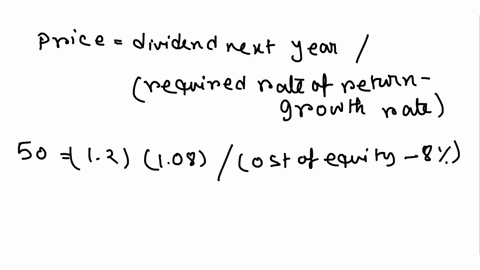 price = dividend next year /
(required rate of return-
growth rate)
50 = (1.2) (1.08) / (cost of equity - 8%)